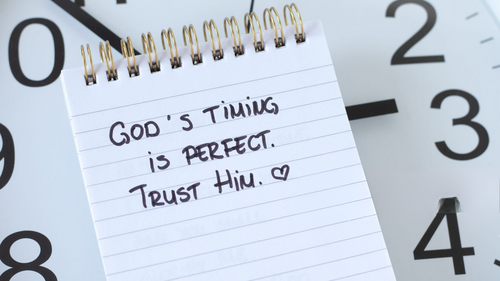 GOD'S TIMING
is PERFECT.
TRUST HIM. ♡
0
2
3
4
9
8